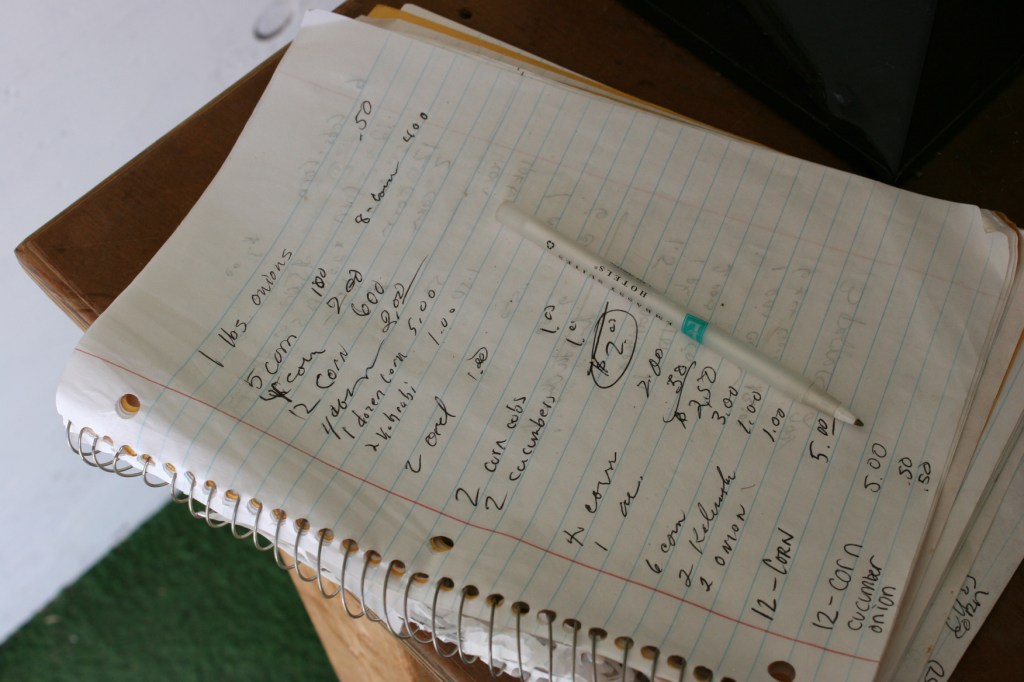 1 lbs onions .50
5 corn 100
corn 200 8-corn 400
12 CORN 600
1 dozen corn 5.00
2 kohlrabi 1.00
2 1.00
2 corn cobs 1.00
2 cucumbers 1.00
$2.00
4 corn 2.00
1 .50
$2.50
6 corn 3.00
2 1.00
2 ONION 1.00
5.00
12-CORN 5.00
12-CORN 5.00
cucumber .50
onion .50
HOTELS
CORN
50